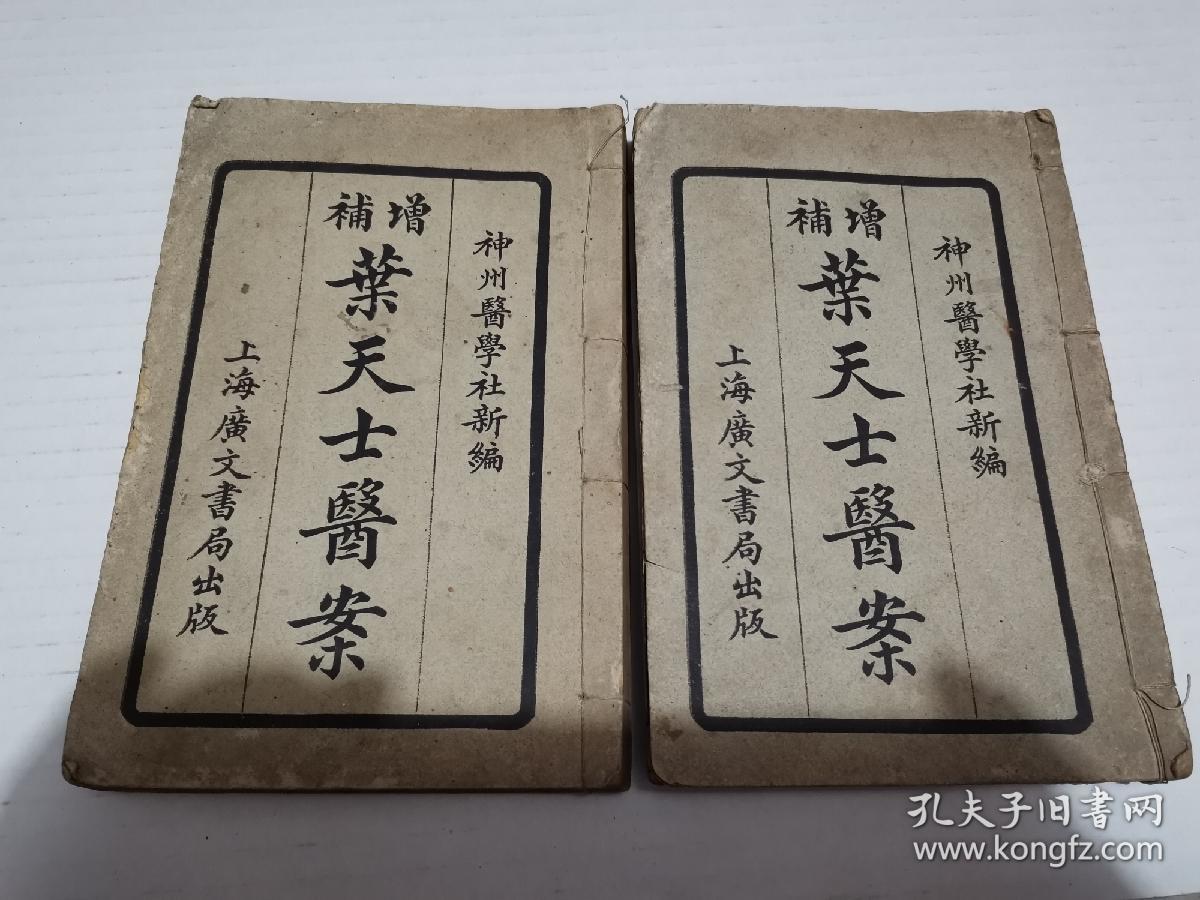 神州醫學社新編
增補
葉天士醫案
上海廣文書局出版
神州醫學社新編
增補
葉天士醫案
上海廣文書局出版
孔夫子旧书网
www.kongfz.com